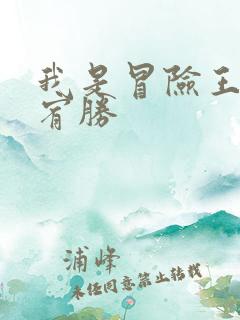 我是冒險王
宥勝
浦峰
未经同意禁止转载